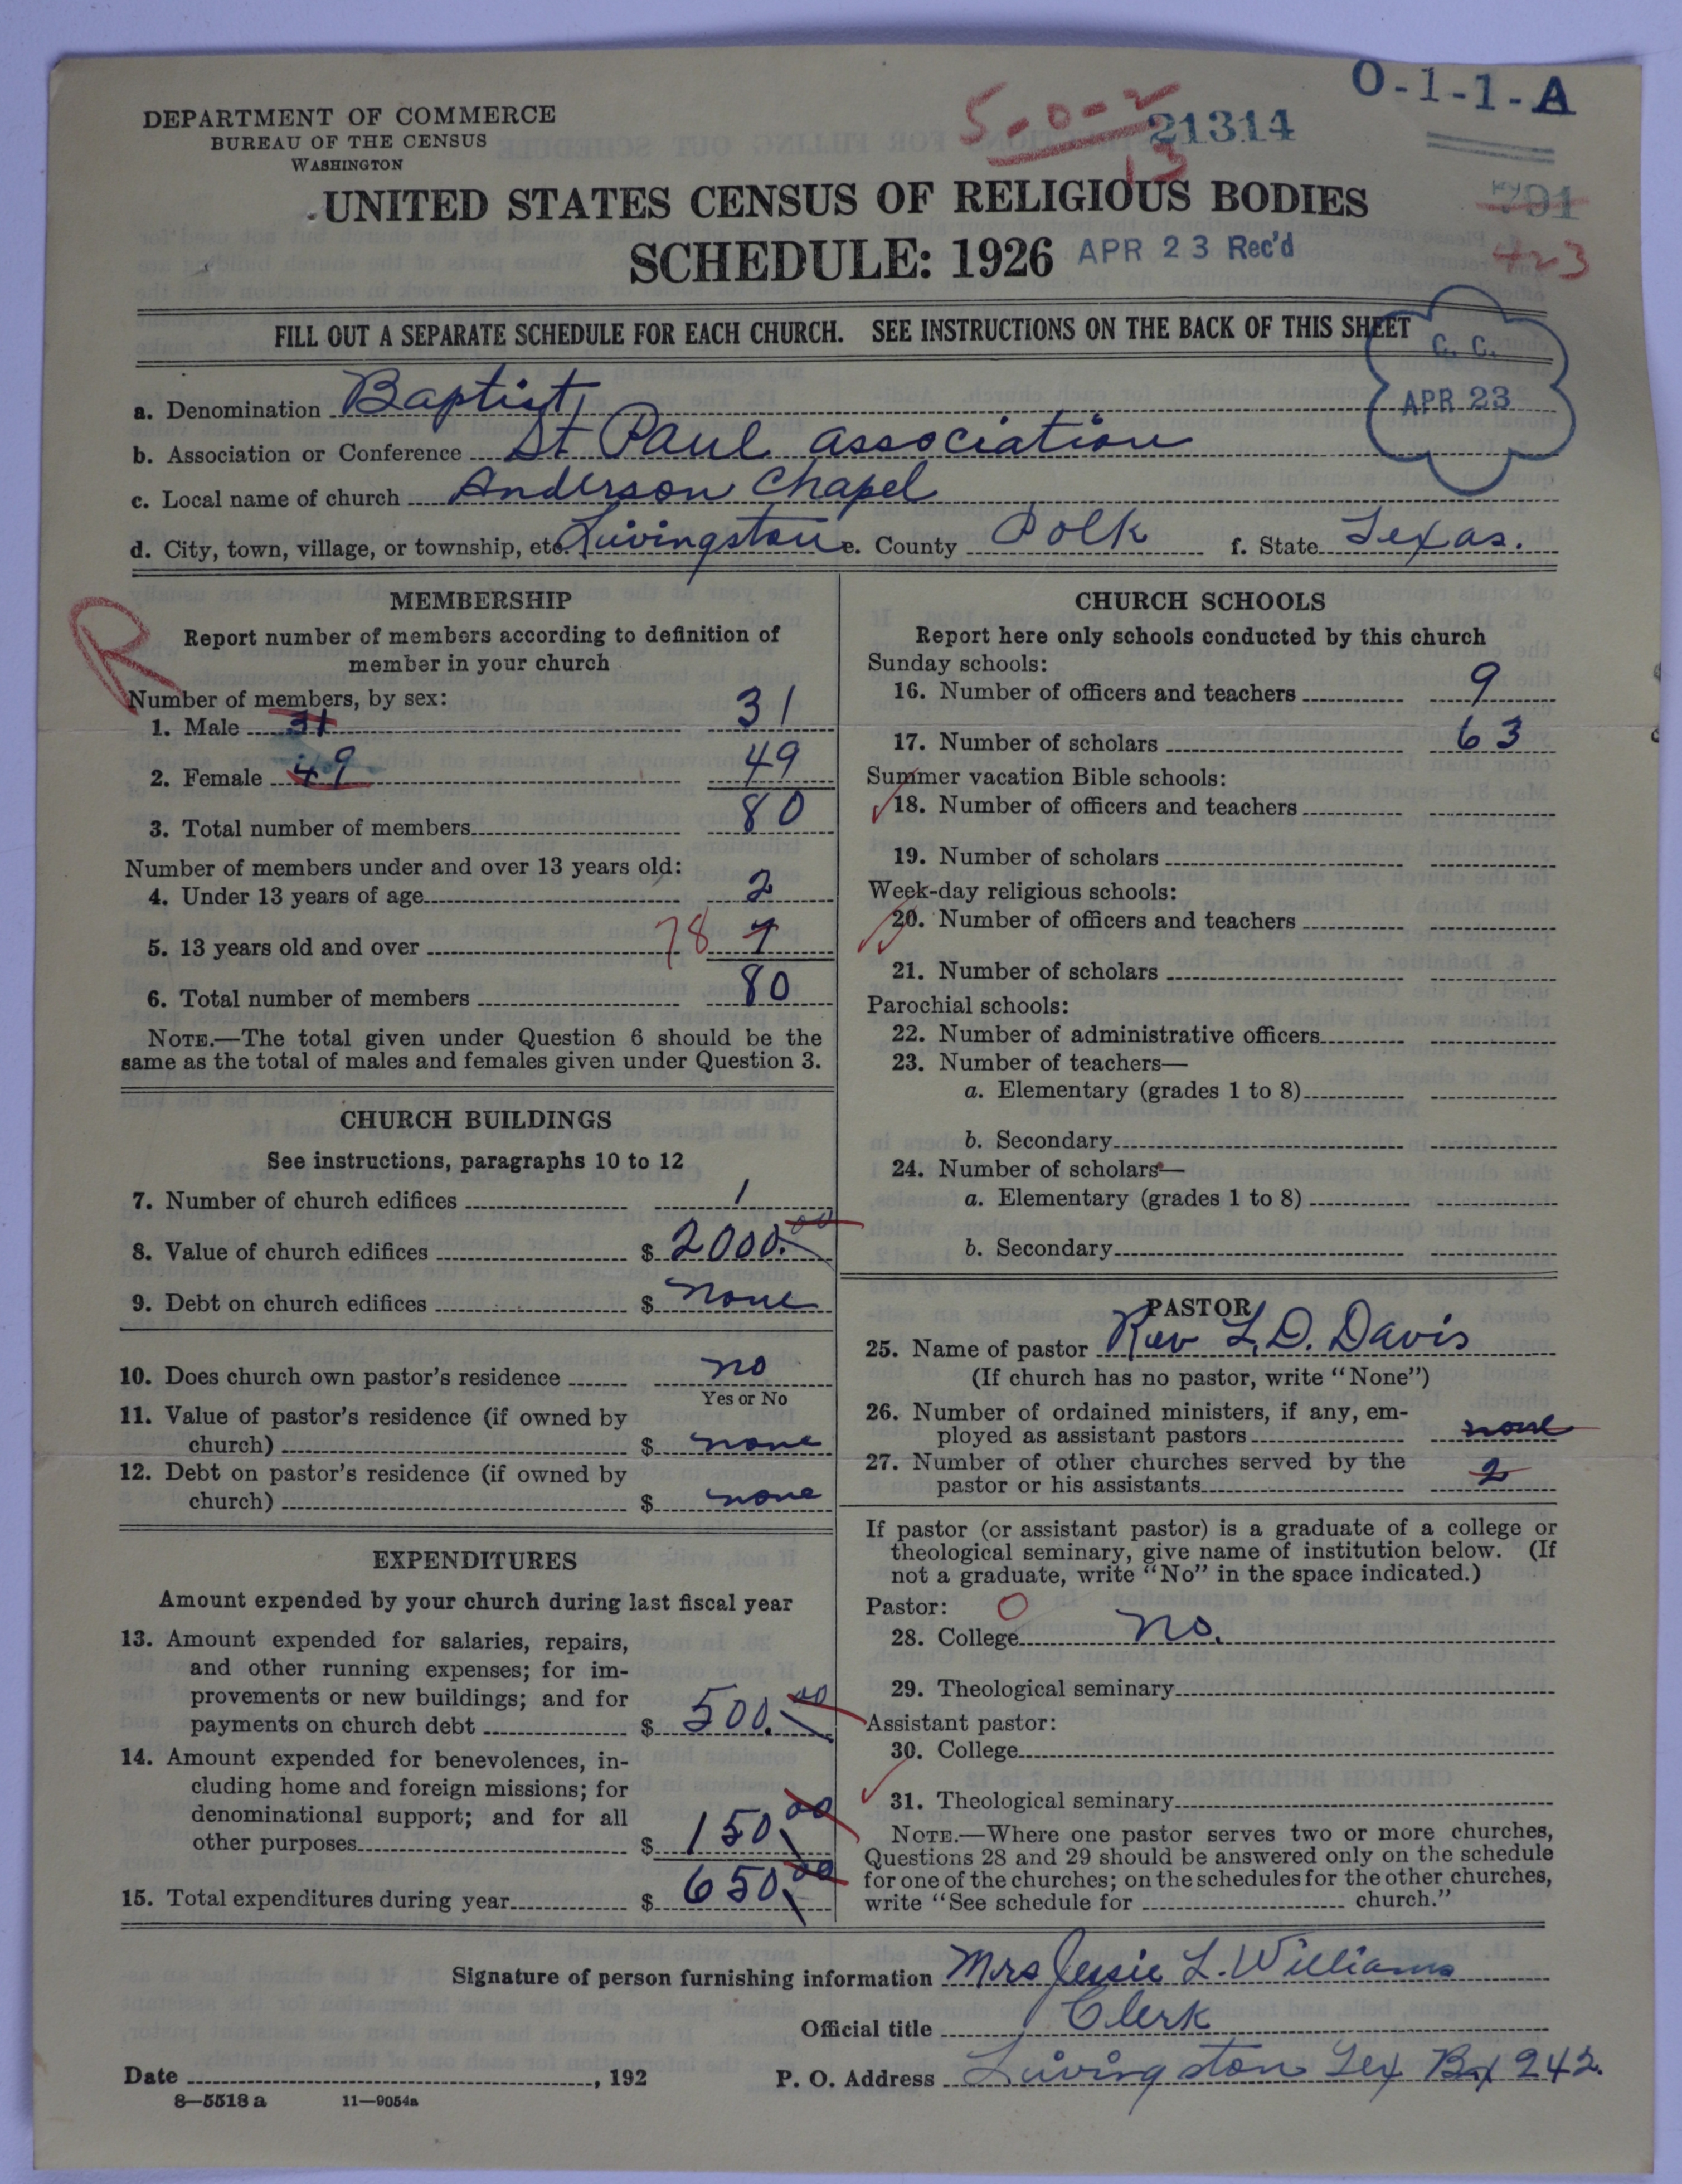 O-1-1-A
DEPARTMENT OF COMMERCE
BUREAU OF THE CENSUS
WASHINGTON
5-0-2
21314
13
UNITED STATES CENSUS OF RELIGIOUS BODIES
791
SCHEDULE: 1926 APR 23 Rec'd
423
FILL OUT A SEPARATE SCHEDULE FOR EACH CHURCH. SEE INSTRUCTIONS ON THE BACK OF THIS SHEET
C. C.
APR 23
a. Denomination Baptist
b. Association or Conference St Paul association
c. Local name of church Anderson Chapel
d. City, town, village, or township, etc. Livingston e. County Polk f. State Texas.
R
MEMBERSHIP
Report number of members according to definition of
member in your church
Number of members, by sex:
1. Male 31 31
2. Female 49 49
3. Total number of members 80
Number of members under and over 13 years old:
4. Under 13 years of age 2
5. 13 years old and over 78
6. Total number of members 80
NOTE.—The total given under Question 6 should be the
same as the total of males and females given under Question 3.
CHURCH BUILDINGS
See instructions, paragraphs 10 to 12
7. Number of church edifices 1
8. Value of church edifices $ 2000.00
9. Debt on church edifices $ none
10. Does church own pastor's residence no
Yes or No
11. Value of pastor's residence (if owned by
church) $ none
12. Debt on pastor's residence (if owned by
church) $ none
EXPENDITURES
Amount expended by your church during last fiscal year
13. Amount expended for salaries, repairs,
and other running expenses; for im-
provements or new buildings; and for
payments on church debt $ 500.00
14. Amount expended for benevolences, in-
cluding home and foreign missions; for
denominational support; and for all
other purposes $ 150.00
15. Total expenditures during year $ 650.00
CHURCH SCHOOLS
Report here only schools conducted by this church
Sunday schools:
16. Number of officers and teachers 9
17. Number of scholars 63
Summer vacation Bible schools:
18. Number of officers and teachers
19. Number of scholars
Week-day religious schools:
20. Number of officers and teachers
21. Number of scholars
Parochial schools:
22. Number of administrative officers
23. Number of teachers—
a. Elementary (grades 1 to 8)
b. Secondary
24. Number of scholars—
a. Elementary (grades 1 to 8)
b. Secondary
PASTOR
25. Name of pastor Rev L. D. Davis
(If church has no pastor, write "None")
26. Number of ordained ministers, if any, em-
ployed as assistant pastors none
27. Number of other churches served by the
pastor or his assistants 2
If pastor (or assistant pastor) is a graduate of a college or
theological seminary, give name of institution below. (If
not a graduate, write "No" in the space indicated.)
Pastor: O
28. College no.
29. Theological seminary
Assistant pastor:
30. College
31. Theological seminary
NOTE.—Where one pastor serves two or more churches,
Questions 28 and 29 should be answered only on the schedule
for one of the churches; on the schedules for the other churches,
write "See schedule for church."
Signature of person furnishing information Mrs Jessie L. Williams
Official title Clerk
Date , 192 P. O. Address Livingston Tex Bx 242.
8—5518 a 11—9054a